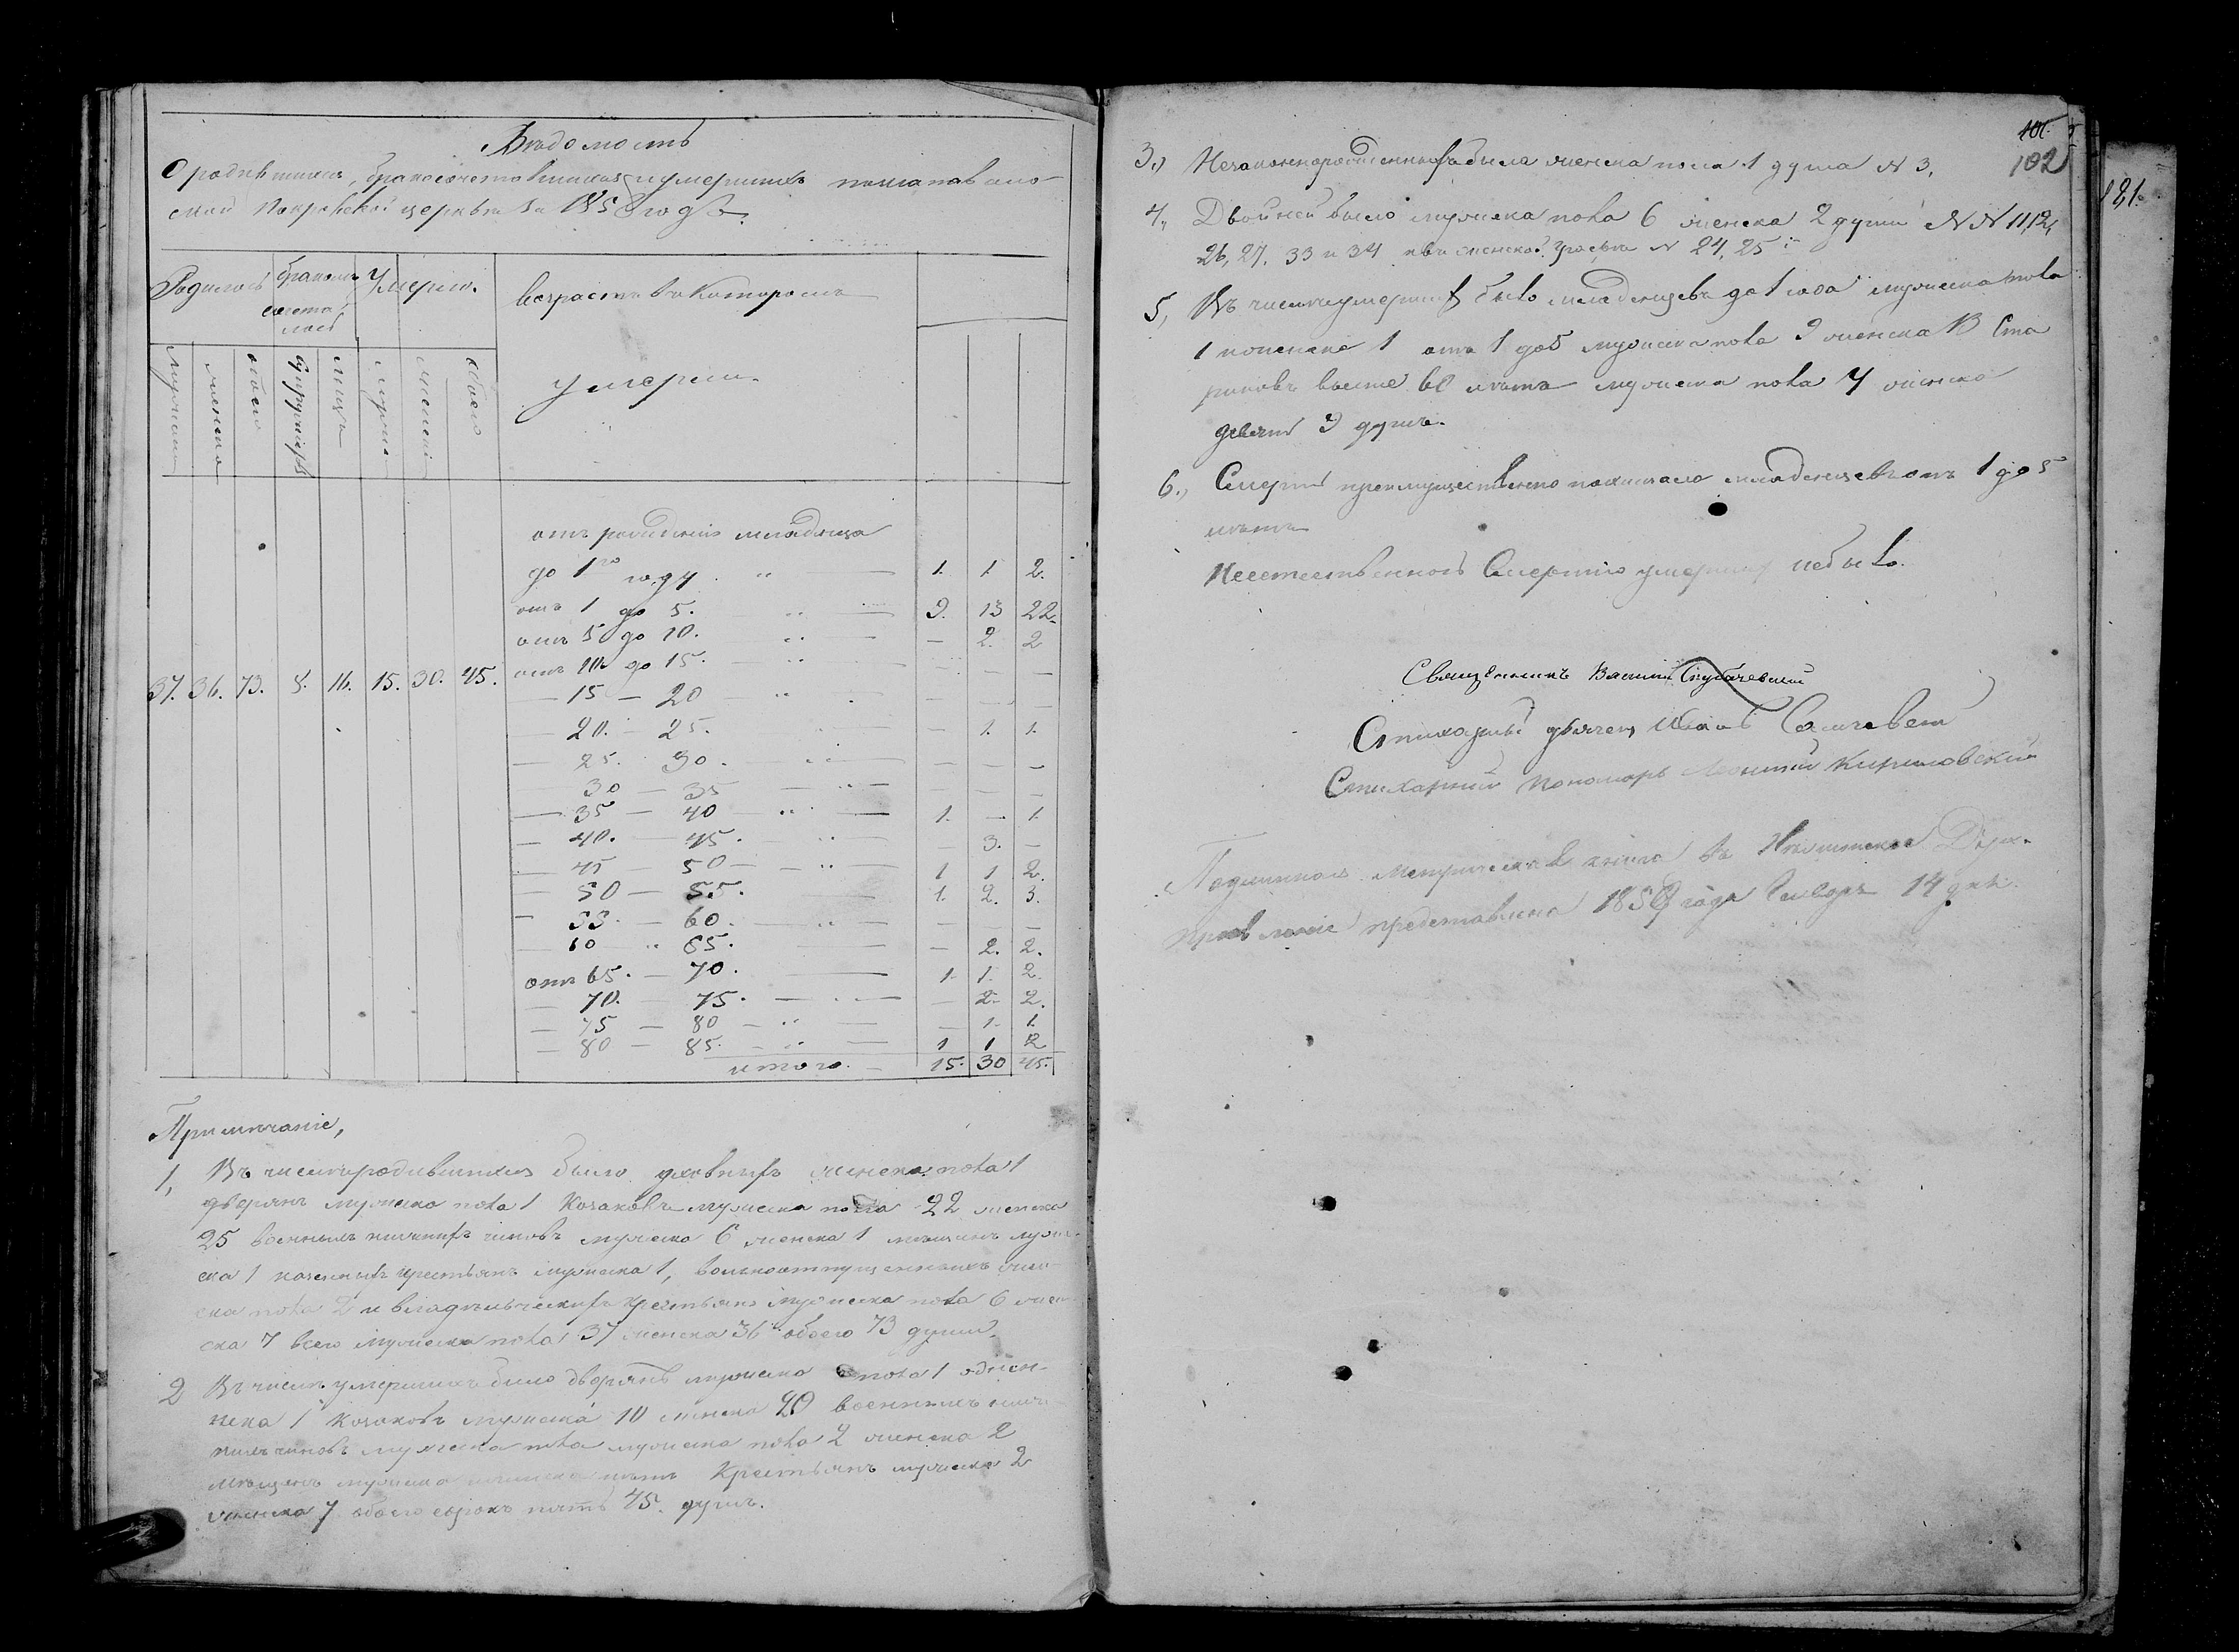 Ведомость
О родившихся, бракосочетавшихся и умершихъ
Покровской церкви за 185 годъ.
Родилось
бракомъ
сочета
лось
Умерло.
возрастъ въ которомъ
умерли.
мужска
женска
обоего
супружествъ
лицъ
мужска
женска
обоего
37. 36. 73. 8. 16. 15. 30. 45.
отъ рожденія младенца
до 1го году 1. 1. 2.
отъ 1 до 5. 9. 13 22.
отъ 5 до 10. — 2. 2
отъ 10 до 15. — — —
— 15 — 20 — — —
— 20. — 25. — 1. 1.
— 25. 30. — — —
30 — 35 — — —
— 35 — 40 1. — 1.
— 40. — 45. — 3. —
— 45 — 50 1 1 2.
— 50 — 55. 1. 2. 3.
— 55. — 60. — — —
— 60 65. — 2. 2.
отъ 65. — 70. 1. 1. 2.
— 70. — 75. — 2. 2.
— 75 — 80 — 1. 1.
— 80 — 85. 1 1 2
итого. 15. 30 45.
Примечаніе,
1, Въ числе родившихся было духовныхъ женска пола 1
дворянъ мужска пола 1 козаковъ мужска пола 22 женска
25 военныхъ нижнихъ чиновъ мужска 6 женска 1 мещанъ муж-
ска 1 казенныхъ крестьянъ мужска 1, вольноотпущенныхъ жен-
ска пола 2 и владельческихъ крестьянъ мужска пола 6 жен-
ска 7 всего мужска пола 37 женска 36 обоего 73 души.
2 Въ числе умершихъ было дворянъ мужска пола 1
женска 1 козаковъ мужска 10 женска 20 военныхъ ниж-
нихъ чиновъ мужска пола мужска пола 2 женска 2
мещанъ мужска крестьянъ мужска 2
женска 7 обоего сорокъ пять 45. душъ.
102
121.
3.) Незаконнорожденныхъ была женска пола 1 душа N 3.
4., Двойней было мужска пола 6 женска 2 души N N 11, 12,
26, 27. 33 и 34 женской N 24, 25
5, Въ числе умершихъ было младенцевъ до 1 года мужска пола
1 женска 1 отъ 1 до 5 мужска пола 9 женска 13 Ста
риковъ выше 60 летъ мужска пола женска
девять 9 душъ.
6., Смерть преимущественно похищало младенцевъ отъ 1 до 5
летъ
Неестественною смертію умершихъ небыло.
Священникъ Василий
Стихарный дьячекъ
Стихарный Пономарь Леонтій Кириловскій
Подлинная метрическая книга въ Нежинское Духов.
Правленіе представлена 185 года Января 14 дня.